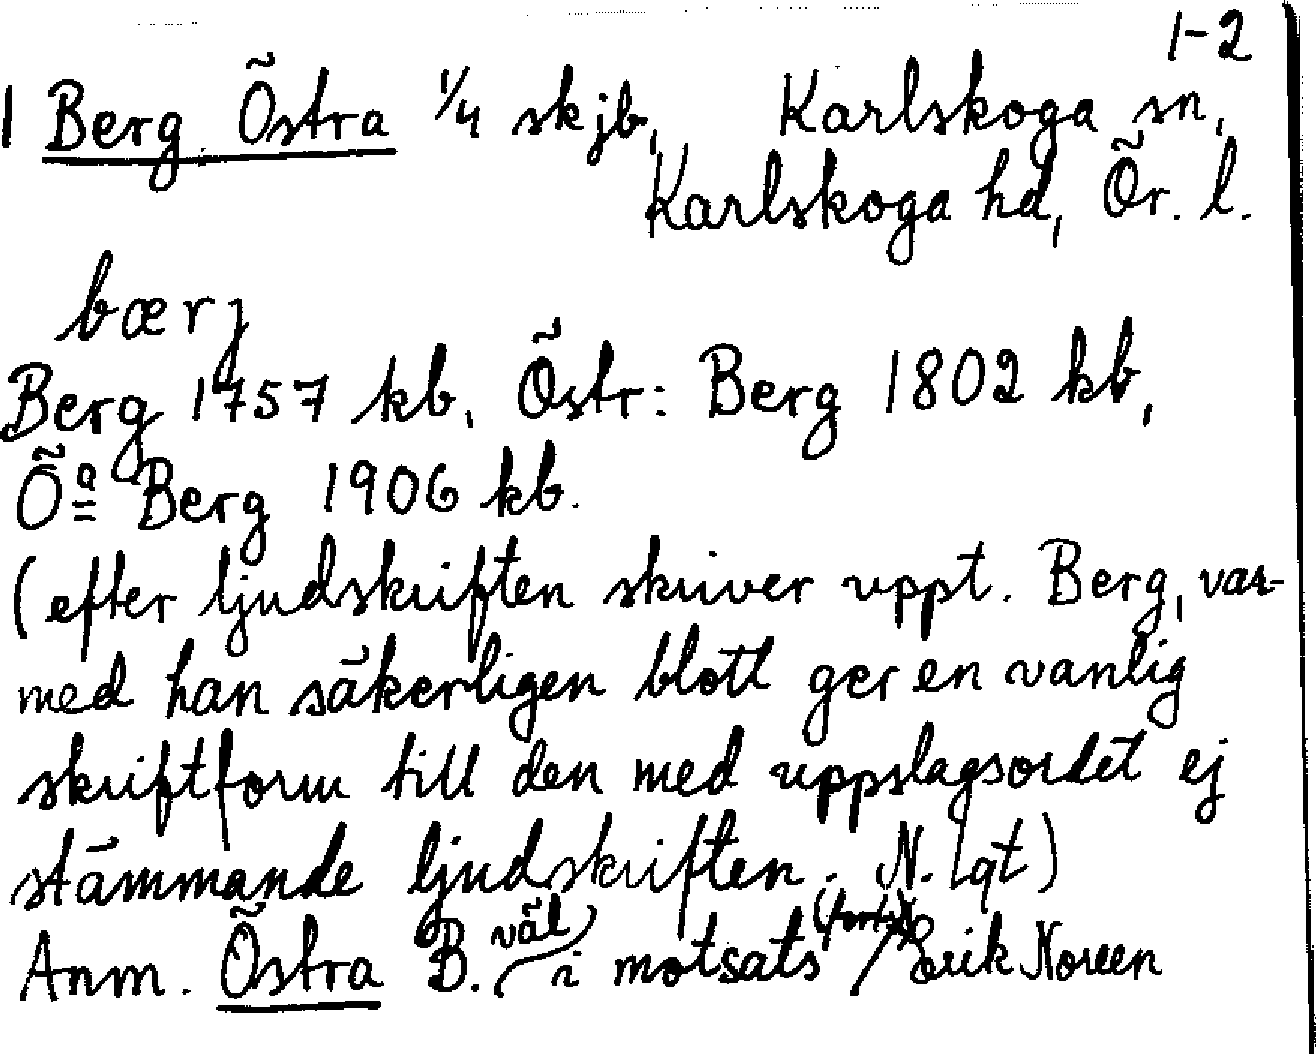 1-2
1 Berg Östra 1/4 skjb, Karlskoga sn,
Karlskoga hd, Ör. l.
bærj
Berg 1757 kb, Östr: Berg 1802 kb,
Öa Berg 1906 kb.
(efter ljudskriften skriver uppt. Berg, var-
med han säkerligen blott ger en vanlig
skriftform till den med uppslagsordet ej
stämmande ljudskriften. N. Lqt)
Anm. Östra B. (väl) i motsats (forts) / Erik Noreen